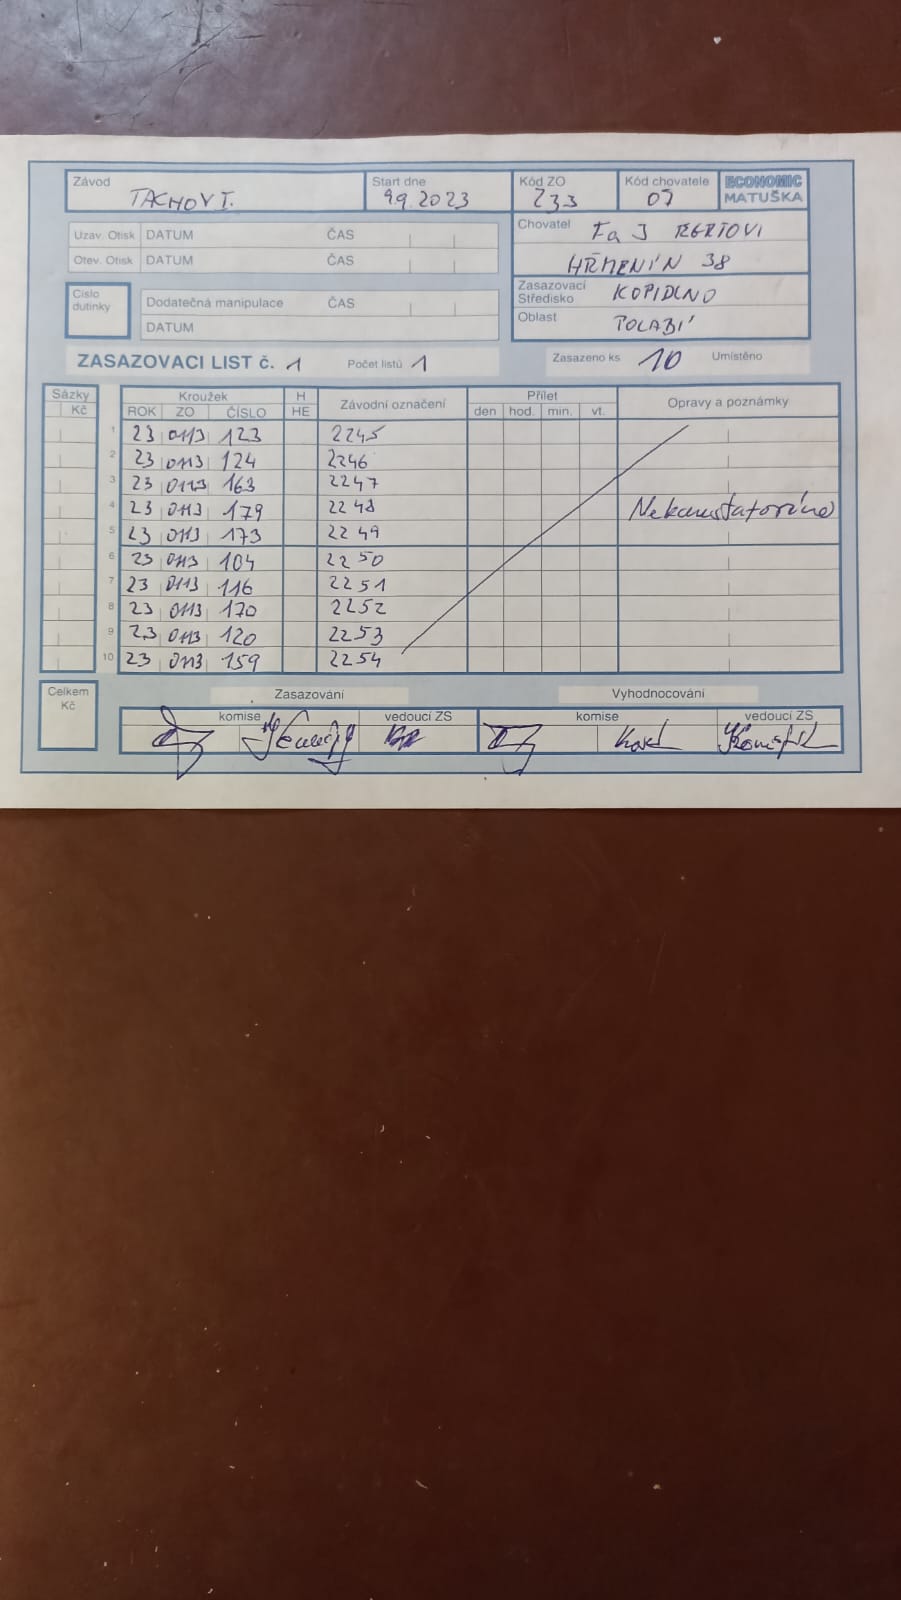 Závod TACHOV I. Start dne 9.9.2023 Kód ZO 233 Kód chovatele 07 ECONOMIC MATUŠKA
Uzav. Otisk DATUM ČAS
Otev. Otisk DATUM ČAS
Chovatel Fa J
HŘMENÍN 38
Číslo dutinky Dodatečná manipulace ČAS
DATUM
Zasazovací Středisko KOPIDLNO
Oblast POLABÍ
ZASAZOVACI LIST č. 1 Počet listů 1 Zasazeno ks 10 Umístěno
Sázky Kroužek H Závodní označení Přílet Opravy a poznámky
Kč ROK ZO ČÍSLO HE den hod. min. vt.
1 23 0113 123 2245
2 23 0113 124 2246
3 23 0113 163 2247
4 23 0113 179 2248
5 23 0113 173 2249
6 23 0113 104 2250
7 23 0113 116 2251
8 23 0113 170 2252
9 23 0113 120 2253
10 23 0113 159 2254
Celkem Kč Zasazování Vyhodnocování
komise vedoucí ZS komise vedoucí ZS